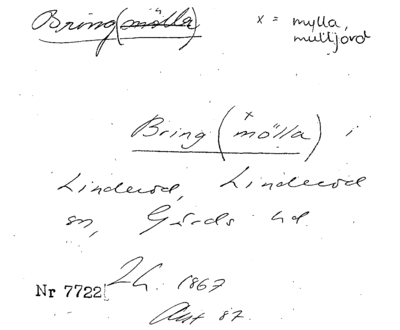 Bring(mölla)
x = mylla,
mulljord
Bring (mölla) i
x
Linderöd, Linderöd
sn, Gärds hd.
Nr 7722 LH. 1867
Avt 87.